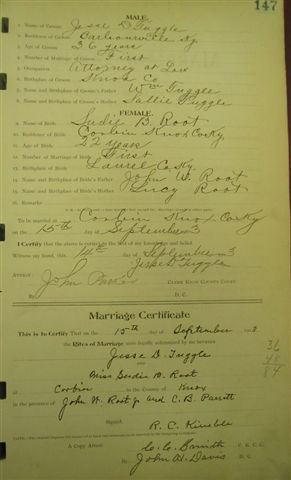 147
MALE.
1. Name of Groom Jesse D Tuggle
2. Residence of Groom Barbourville Ky
3. Age of Groom 36 years
4. Number of Marriage of Groom First
5. Occupation Attorney at Law
6. Birthplace of Groom Knox Co
7. Name and Birthplace of Groom's Father Wm Tuggle
8. Name and Birthplace of Groom's Mother Sallie Tuggle
FEMALE.
Name of Bride Sudie B. Root
Residence of Bride Corbin Knox Co Ky
Age of Bride 22 years
Number of Marriage of Bride First
Birthplace of Bride Laurel Co Ky
Name and Birthplace of Bride's Father John W. Root
Name and Birthplace of Bride's Mother Lucy Root
Remarks
To be married at Corbin Knox Co Ky
on the 15th day of September 3
I Certify that the above is correct to the best of my knowledge and belief.
Witness my hand, this 14th day of September 3
Jesse D Tuggle
Attest:
CLERK KNOX COUNTY COURT
John
D. C.
Marriage Certificate
This is to Certify That on the 15th day of September
the Rites of Marriage were legally solemnized by me between
Jesse D. Tuggle
and
Miss Sudie B. Root
at Corbin in the County of Knox
in the presence of John W. Root Jr and C. B. Parritt
Signed, R. C. Kimble
36
48
84
A Copy Attest: C. C. Smith
By John H. Davis D. C.